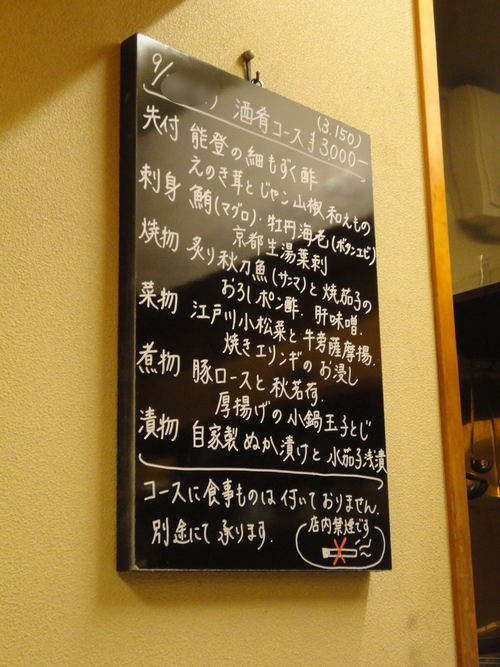 9/
) 酒肴コース ¥3000-
(3.150)
先付 能登の細もずく酢
えのき茸とじゃこ山椒和えもの
刺身 鮪(マグロ)・牡丹海老(ボタンエビ)
京都生湯葉刺
焼物 炙り秋刀魚(サンマ)と焼茄子の
おろしポン酢. 肝味噌.
菜物 江戸川小松菜と牛蒡薩摩揚.
焼きエリンギのお浸し
煮物 豚ロースと秋茗荷.
厚揚げの小鍋玉子とじ
漬物 自家製ぬか漬けと小茄子浅漬
コースに食事ものは付いておりません.
別途にて承ります.
店内禁煙です